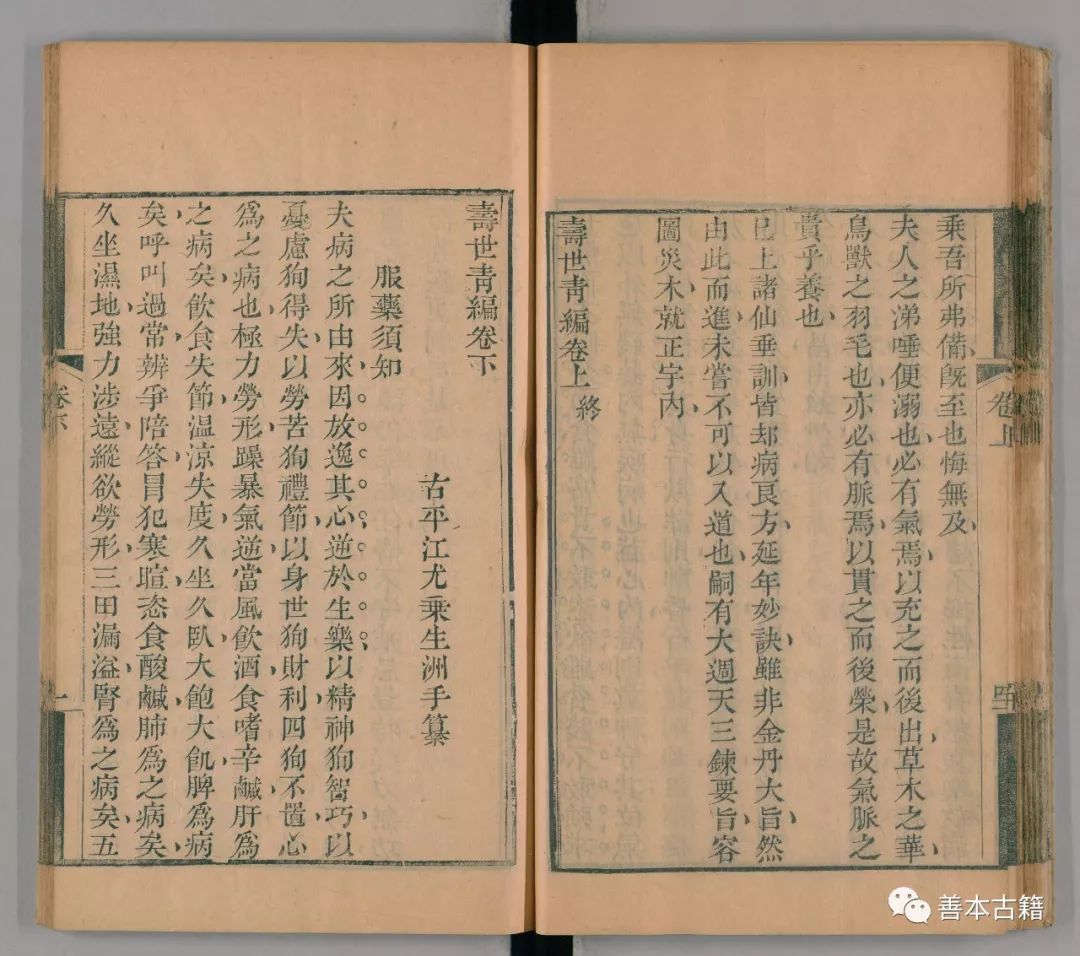 乘吾所弗備旣至也悔無及
夫人之涕唾便溺也必有氣焉以充之而後出草木之華
鳥獸之羽毛也亦必有脈焉以貫之而後榮是故氣脈之
貴乎養也
已上諸仙垂訓皆却病良方延年妙訣雖非金丹大旨然
由此而進未嘗不可以入道也嗣有大週天三鍊要旨容
圖災木就正宇內
壽世靑編卷上 終
卷上
壽世靑編卷下
古平江尤乘生洲手纂
服藥須知
夫病之所由來因放逸其心逆於生樂以精神狥智巧以
憂慮狥得失以勞苦狥禮節以身世狥財利四狥不置心
爲之病也極力勞形躁暴氣逆當風飲酒食嗜辛鹹肝爲
之病矣飲食失節温涼失度久坐久臥大飽大飢脾爲病
矣呼叫過常辨爭陪答冒犯寒暄恣食酸鹹肺爲之病矣
久坐濕地強力涉遠縱欲勞形三田漏溢腎爲之病矣五
卷下
一
善本古籍